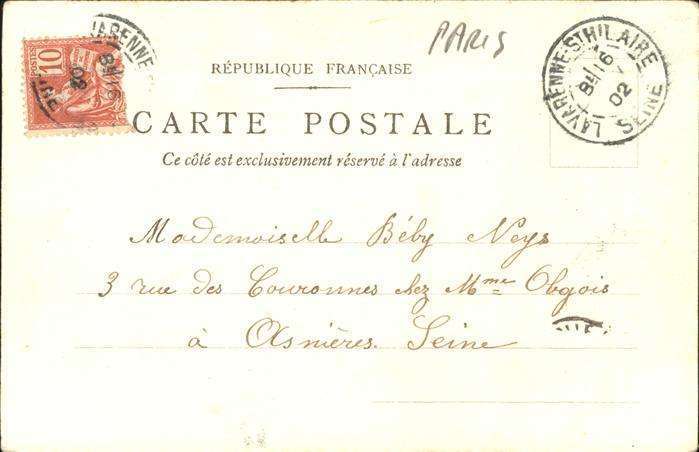 PARIS
RÉPUBLIQUE FRANÇAISE
CARTE POSTALE
Ce côté est exclusivement réservé à l'adresse
POSTES
10
VARENNE
LA VARENNE-ST-HILAIRE
16
02
SEINE
Mademoiselle Béby Neys
3 rue des Couronnes chez Mme Obgois
à Asnières. Seine